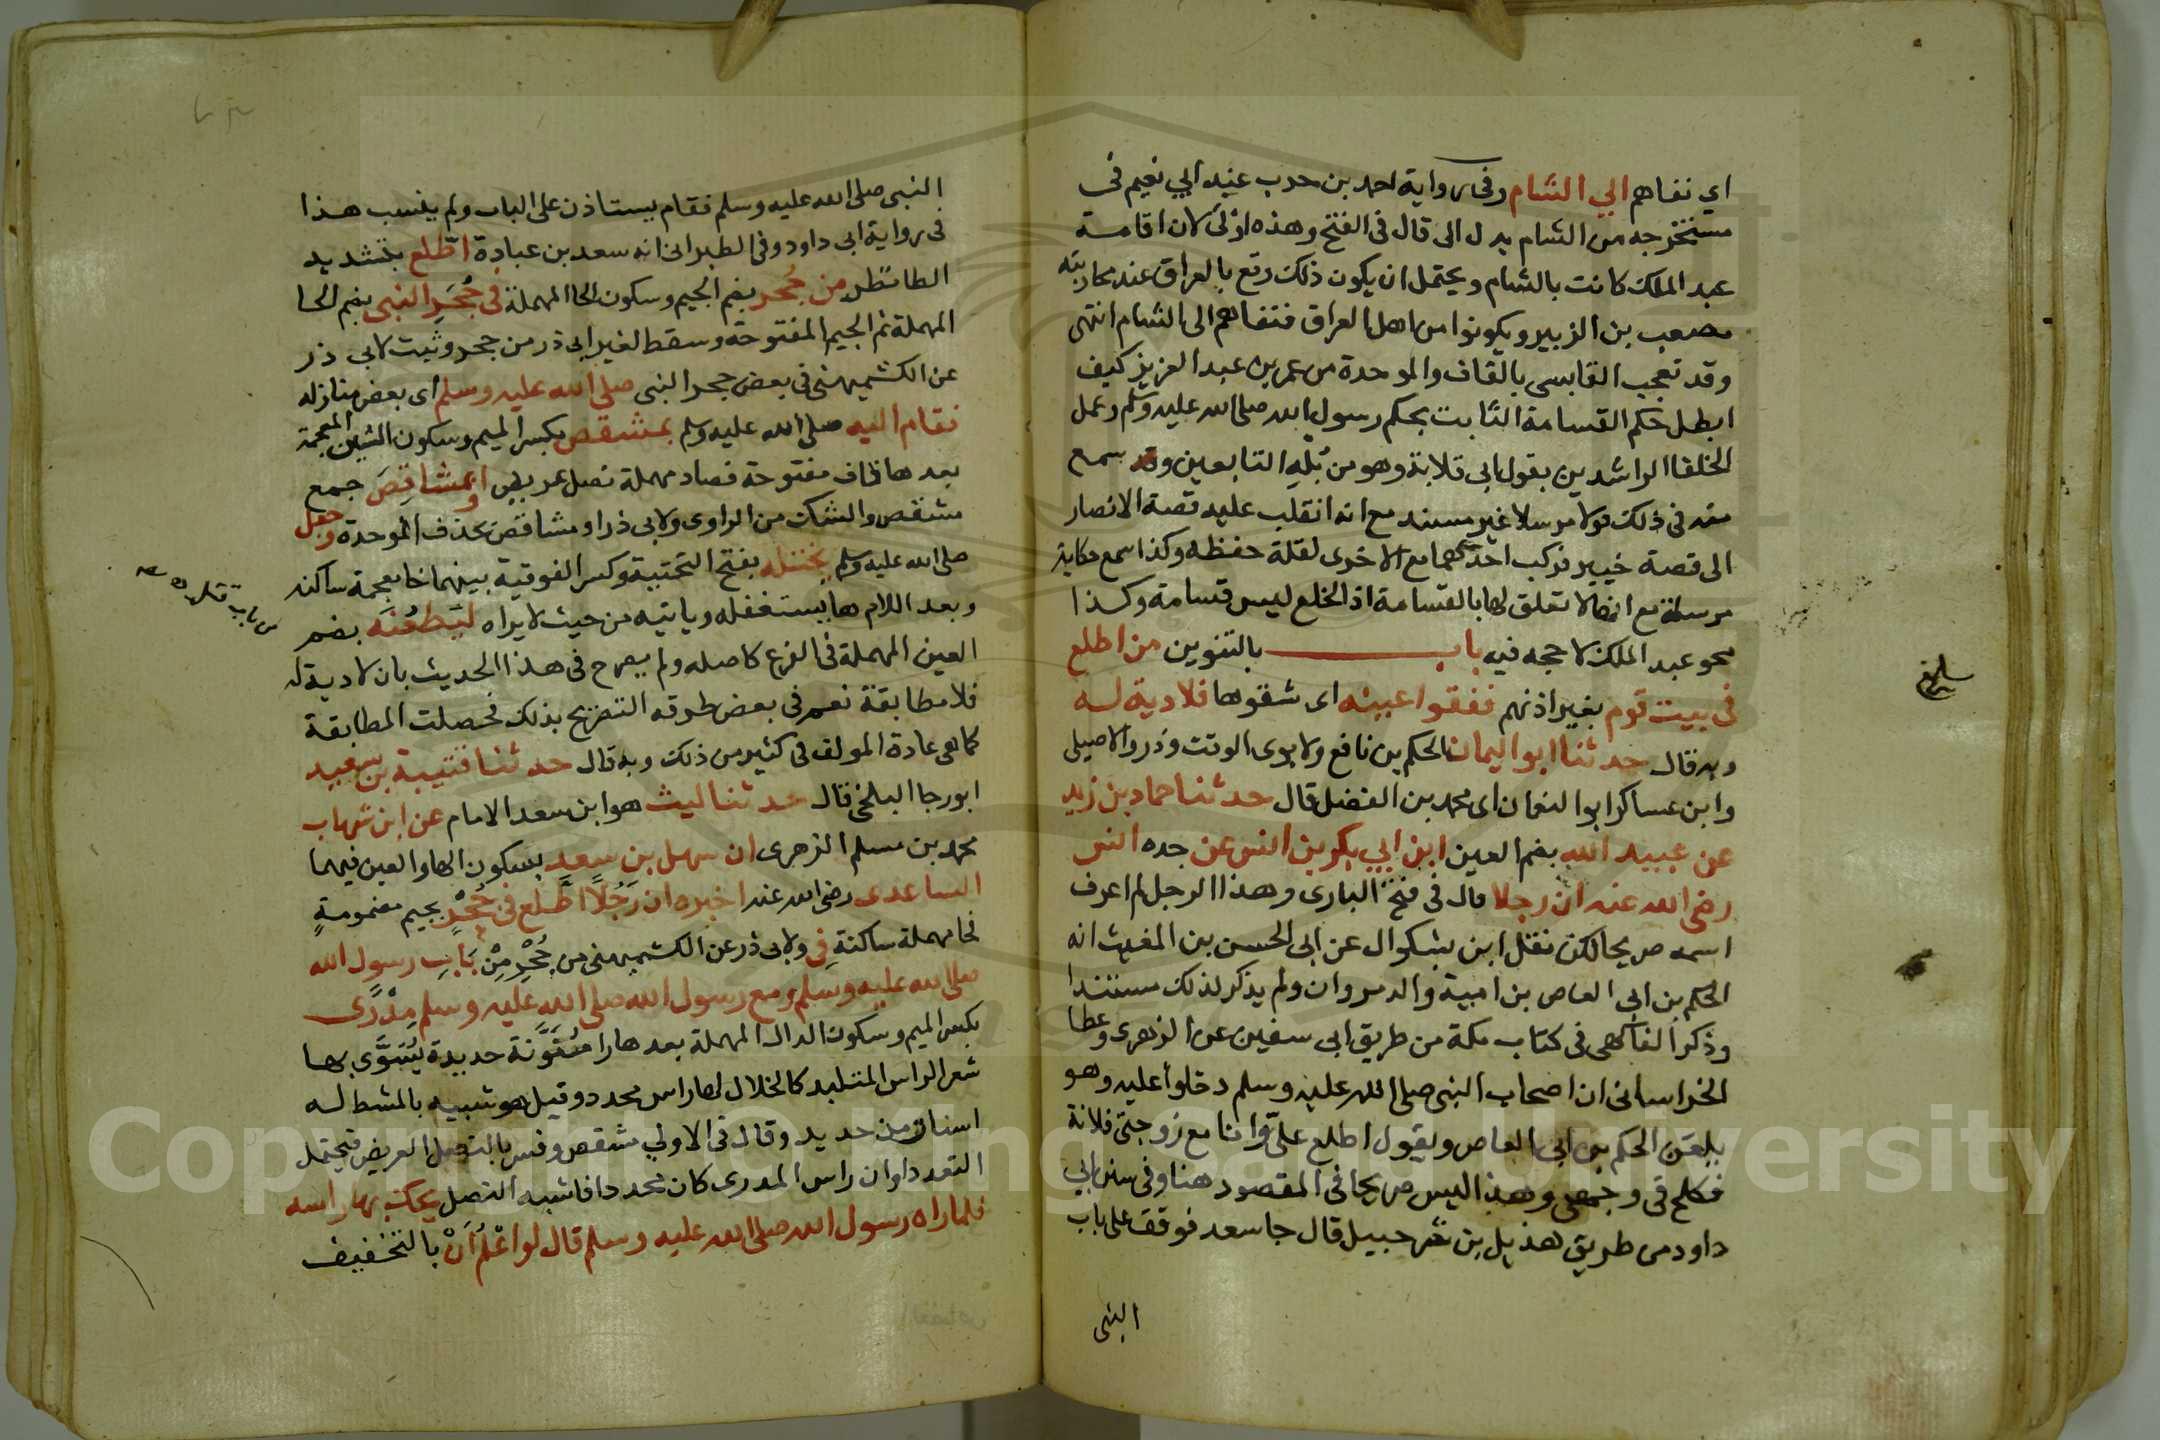 اي نفاهم الي الشام وفى رواية احمد بن حرب عند ابي نعيم فى
مستخرجه من الشام بدل الى قال فى الفتح وهذه اولى لان اقامة
عبد الملك كانت بالشام ويحتمل ان يكون ذلك وقع بالعراق عند محاربته
مصعب بن الزبير ويكونوا من اهل العراق فنفاهم الى الشام انتهى
وقد تعجب القابسى بالقاف والموحدة من عمر بن عبد العزيز كيف
ابطل حكم القسامة الثابت بحكم رسول الله صلى الله عليه وسلم وعمل
الخلفا الراشدين بقول ابى قلابة وهو من بُله التابعين وقد سمع
منه فى ذلك قولا مرسلا غير مسند مع انه انقلب عليه قصة الانصار
الى قصة خيبر فركب احدهما مع الاخرى لقلة حفظه وكذا سمع حكاية
مرسلة مع انها لا تعلق لها بالقسامة اذ الخلع ليس قسامة وكذا
محو عبد الملك لا حجه فيه باب بالتنوين من اطلع
فى بيت قوم بغير اذنهم ففقوا عينه اى شقوها فلا دية له
وبه قال حدثنا ابو اليمان الحكم بن نافع ولابوى الوقت وذر والاصيلى
وابن عساكر ابو النعمان اى محمد بن الفضل قال حدثنا حماد بن زيد
عن عبيد الله بضم العين ابن ابي بكر بن انس عن جده انس
رضى الله عنه ان رجلا قال فى فتح البارى وهذا الرجل لم اعرف
اسمه صريحا لكن نقل ابن بشكوال عن ابى الحسن بن المغيث انه
الحكم بن ابى العاص بن امية والد مروان ولم يذكر لذلك مستندا
وذكر الفاكهى فى كتاب مكة من طريق ابى سفين عن الزهرى وعطا
الخراسانى ان اصحاب النبى صلى الله عليه وسلم دخلوا عليه وهو
يلعن الحكم بن ابى العاص ويقول اطلع علىّ وانا مع زوجتى فلانة
فكلح فى وجهى وهذا ليس صريحا فى المقصود هنا وفى سنن ابي
داود من طريق هذيل بن شرحبيل قال جا سعد فوقف على باب
النبى
النبى صلى الله عليه وسلم فقام يستاذن على الباب ولم ينسب هذا
فى رواية ابى داود وفى الطبرانى انه سعد بن عبادة اطّلع بتشديد
الطا نظر من جُحر بضم الجيم وسكون الحا المهملة فى حُجَرِ النبى بضم الحا
المهملة ثم الجيم المفتوحة وسقط لغير ابى ذر من جحر وثبت لابى ذر
عن الكشميهنى فى بعض حجر النبى صلى الله عليه وسلم اى بعض منازله
فقام اليه صلى الله عليه وسلم بمشقص بكسر الميم وسكون الشين المعجمة
بعدها قاف مفتوحة فصاد مهملة نصل عريض او بمشاقِصَ جمع
مشقص والشك من الراوى ولابى ذر او مشاقص بحذف الموحدة وجعل
صلى الله عليه وسلم يختله بفتح التحتية وكسر الفوقية بينهما خا معجمة ساكنه
وبعد اللام ها يستغفله وياتيه من حيث لا يراه ليَطعُنَه بضم
العين المهملة فى الفرع كاصله ولم يصرح فى هذا الحديث بان لا دية له
فلا مطابقة نعم فى بعض طرقه التصريح بذلك فحصلت المطابقة
كما هى عادة المولف فى كثير من ذلك وبه قال حدثنا قتيبة بن سعيد
ابو رجا البلخى قال حدثنا ليث هو ابن سعد الامام عن ابن شهاب
محمد بن مسلم الزهرى ان سهل بن سعد بسكون الها والعين فيهما
الساعدى رضى الله عنه اخبره ان رَجُلًا اطَّلع فى جُحْرٍ بجيم مضمومةٍ
فحا مهملة ساكنةِ فِى ولابى ذر عن الكشميهنى من جُحْرٍ مِنْ بَابِ رسول الله
صلى الله عليه وسلم ومع رسول الله صلى الله عليه وسلم مِدْرًى
بكسر الميم وسكون الدال المهملة بعدها را منَوَّنة حديدة يُسَوَّى بها
شعر الراس المتلبد كالخلال لها راس محدد وقيل هو شبيه بالمشط له
اسنان من حديد وقال فى الاولى مشقص وفسر بالنصل العريض فيحتمل
التعدد او ان راس المدرى كان محددا فاشبه النصل يحك بها راسه
فلما راه رسول الله صلى الله عليه وسلم قال لو اعْلَمُ اَنْ بالتخفيف
Copyright © King Saud University